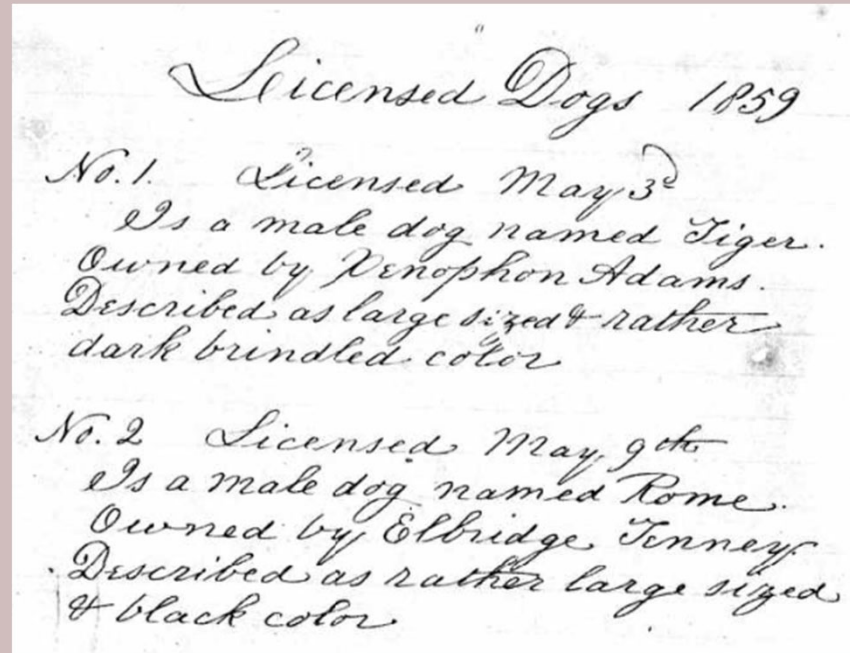 Licensed Dogs 1859
No. 1. Licensed May 3d
Is a male dog named Tiger.
Owned by Xenophon Adams.
Described as large sized & rather
dark brindled color
No. 2 Licensed May 9th
Is a male dog named Rome.
Owned by Elbridge Tenney.
Described as rather large sized
& black color